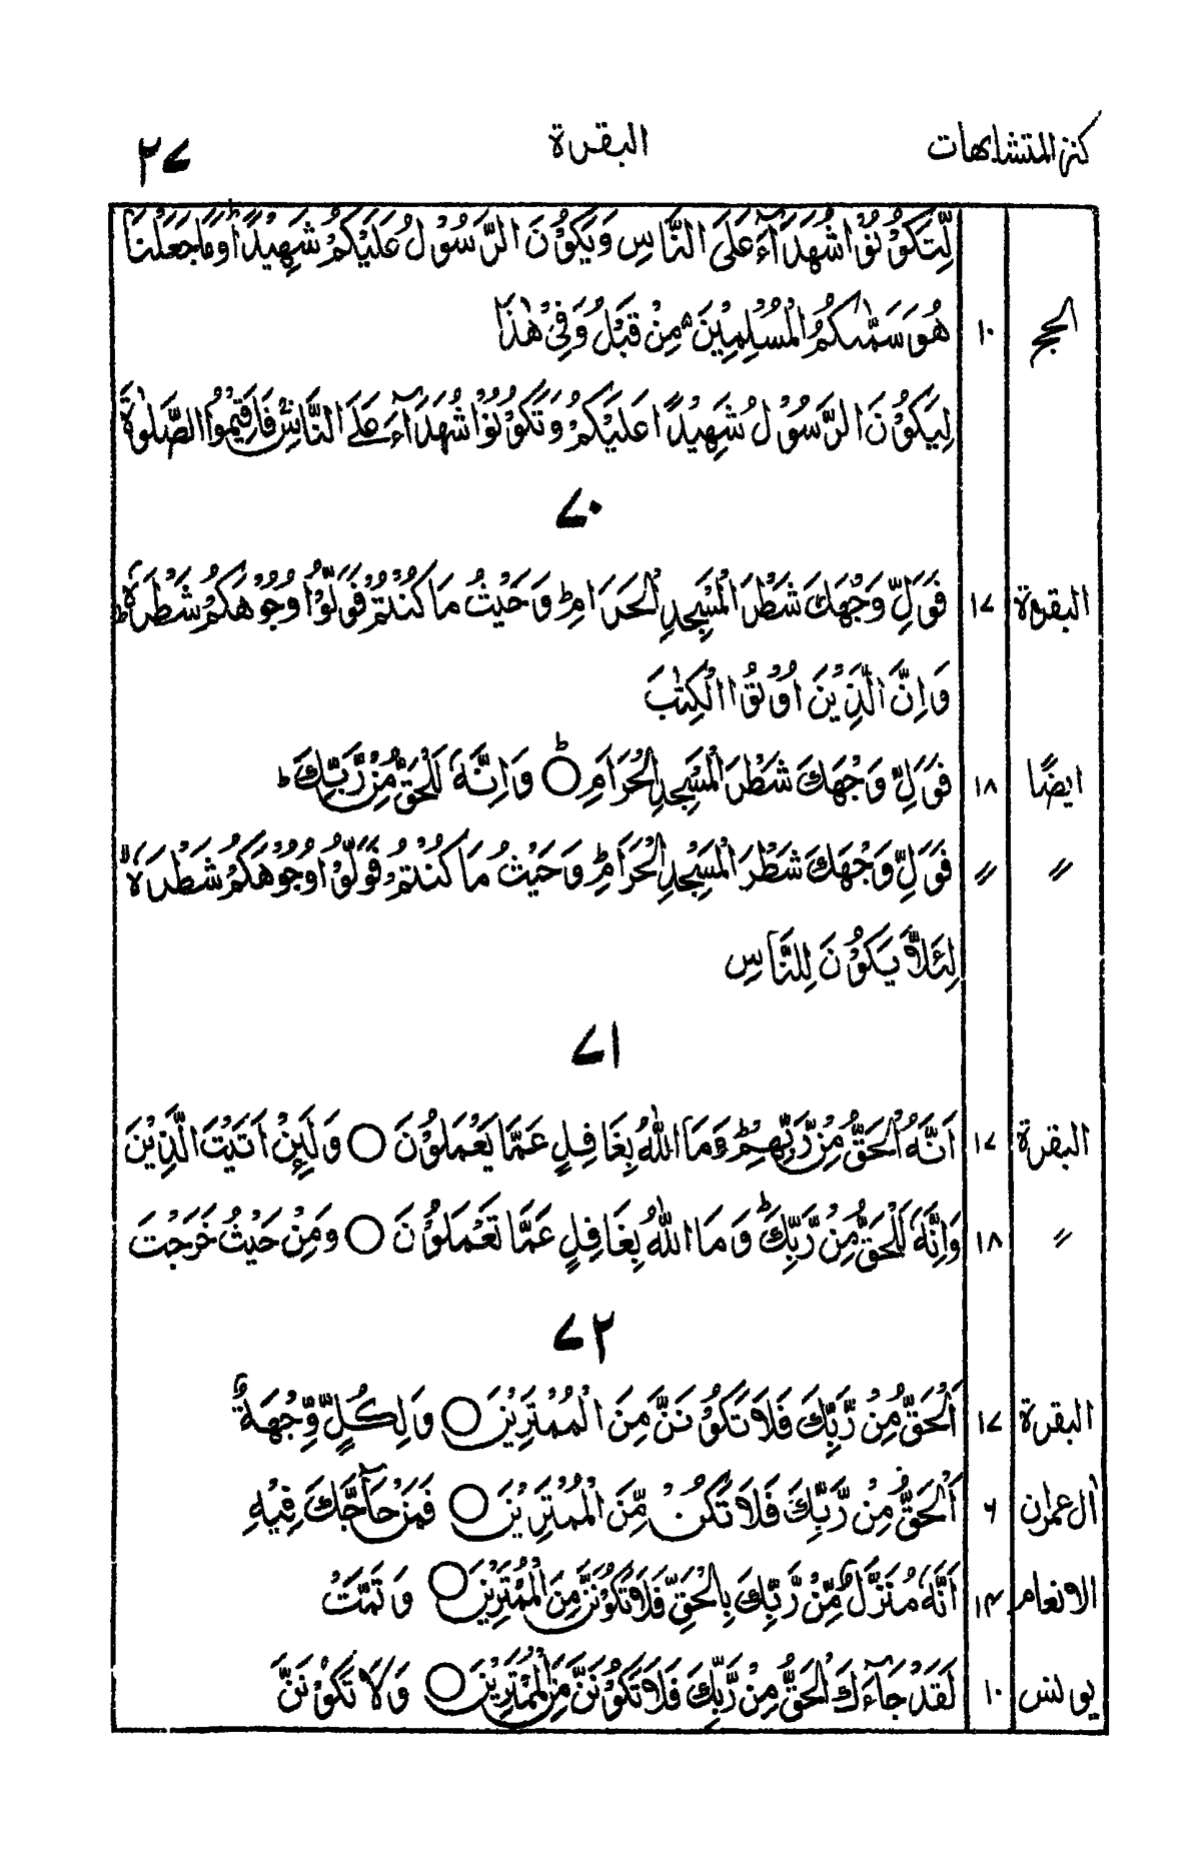 كنز المتشابهات البقرة ٢٧
لِّتَكُوْنُوْا شُهَدَآءَ عَلَى النَّاسِ وَيَكُوْنَ الرَّسُوْلُ عَلَيْكُمْ شَهِيْدًا ؕ وَمَا جَعَلْنَا
الحج ١٠ هُوَ سَمّٰىكُمُ الْمُسْلِمِيْنَ ۵ مِنْ قَبْلُ وَفِيْ هٰذَا
لِيَكُوْنَ الرَّسُوْلُ شَهِيْدًا عَلَيْكُمْ وَتَكُوْنُوْا شُهَدَآءَ عَلَى النَّاسِ فَاَقِيْمُوا الصَّلٰوةَ
٧٠
البقرة ١٧ فَوَلِّ وَجْهَكَ شَطْرَ الْمَسْجِدِ الْحَرَامِ ؕ وَحَيْثُ مَا كُنْتُمْ فَوَلُّوْا وُجُوْهَكُمْ شَطْرَهٗ ؕ
وَاِنَّ الَّذِيْنَ اُوْتُوا الْكِتٰبَ
ايضًا ١٨ فَوَلِّ وَجْهَكَ شَطْرَ الْمَسْجِدِ الْحَرَامِ ؕ○ وَاِنَّهٗ لَلْحَقُّ مِنْ رَّبِّكَ ؕ
〃 〃 فَوَلِّ وَجْهَكَ شَطْرَ الْمَسْجِدِ الْحَرَامِ ؕ وَحَيْثُ مَا كُنْتُمْ فَوَلُّوْا وُجُوْهَكُمْ شَطْرَهٗ ۙ
لِئَلَّا يَكُوْنَ لِلنَّاسِ
٧١
البقرة ١٧ اَنَّهُ الْحَقُّ مِنْ رَّبِّهِمْ ؕ وَمَا اللّٰهُ بِغَافِلٍ عَمَّا يَعْمَلُوْنَ ○ وَلَئِنْ اَتَيْتَ الَّذِيْنَ
〃 ١٨ وَاِنَّهٗ لَلْحَقُّ مِنْ رَّبِّكَ ؕ وَمَا اللّٰهُ بِغَافِلٍ عَمَّا تَعْمَلُوْنَ ○ وَمِنْ حَيْثُ خَرَجْتَ
٧٢
البقرة ١٧ اَلْحَقُّ مِنْ رَّبِّكَ فَلَا تَكُوْنَنَّ مِنَ الْمُمْتَرِيْنَ ○ وَلِكُلٍّ وِّجْهَةٌ
اٰل عمرٰن ٦ اَلْحَقُّ مِنْ رَّبِّكَ فَلَا تَكُنْ مِّنَ الْمُمْتَرِيْنَ ○ فَمَنْ حَآجَّكَ فِيْهِ
الانعام ١٤ اَنَّهٗ مُنَزَّلٌ مِّنْ رَّبِّكَ بِالْحَقِّ فَلَا تَكُوْنَنَّ مِنَ الْمُمْتَرِيْنَ ○ وَتَمَّتْ
يونس ١٠ لَقَدْ جَآءَكَ الْحَقُّ مِنْ رَّبِّكَ فَلَا تَكُوْنَنَّ مِنَ الْمُمْتَرِيْنَ ○ وَلَا تَكُوْنَنَّ